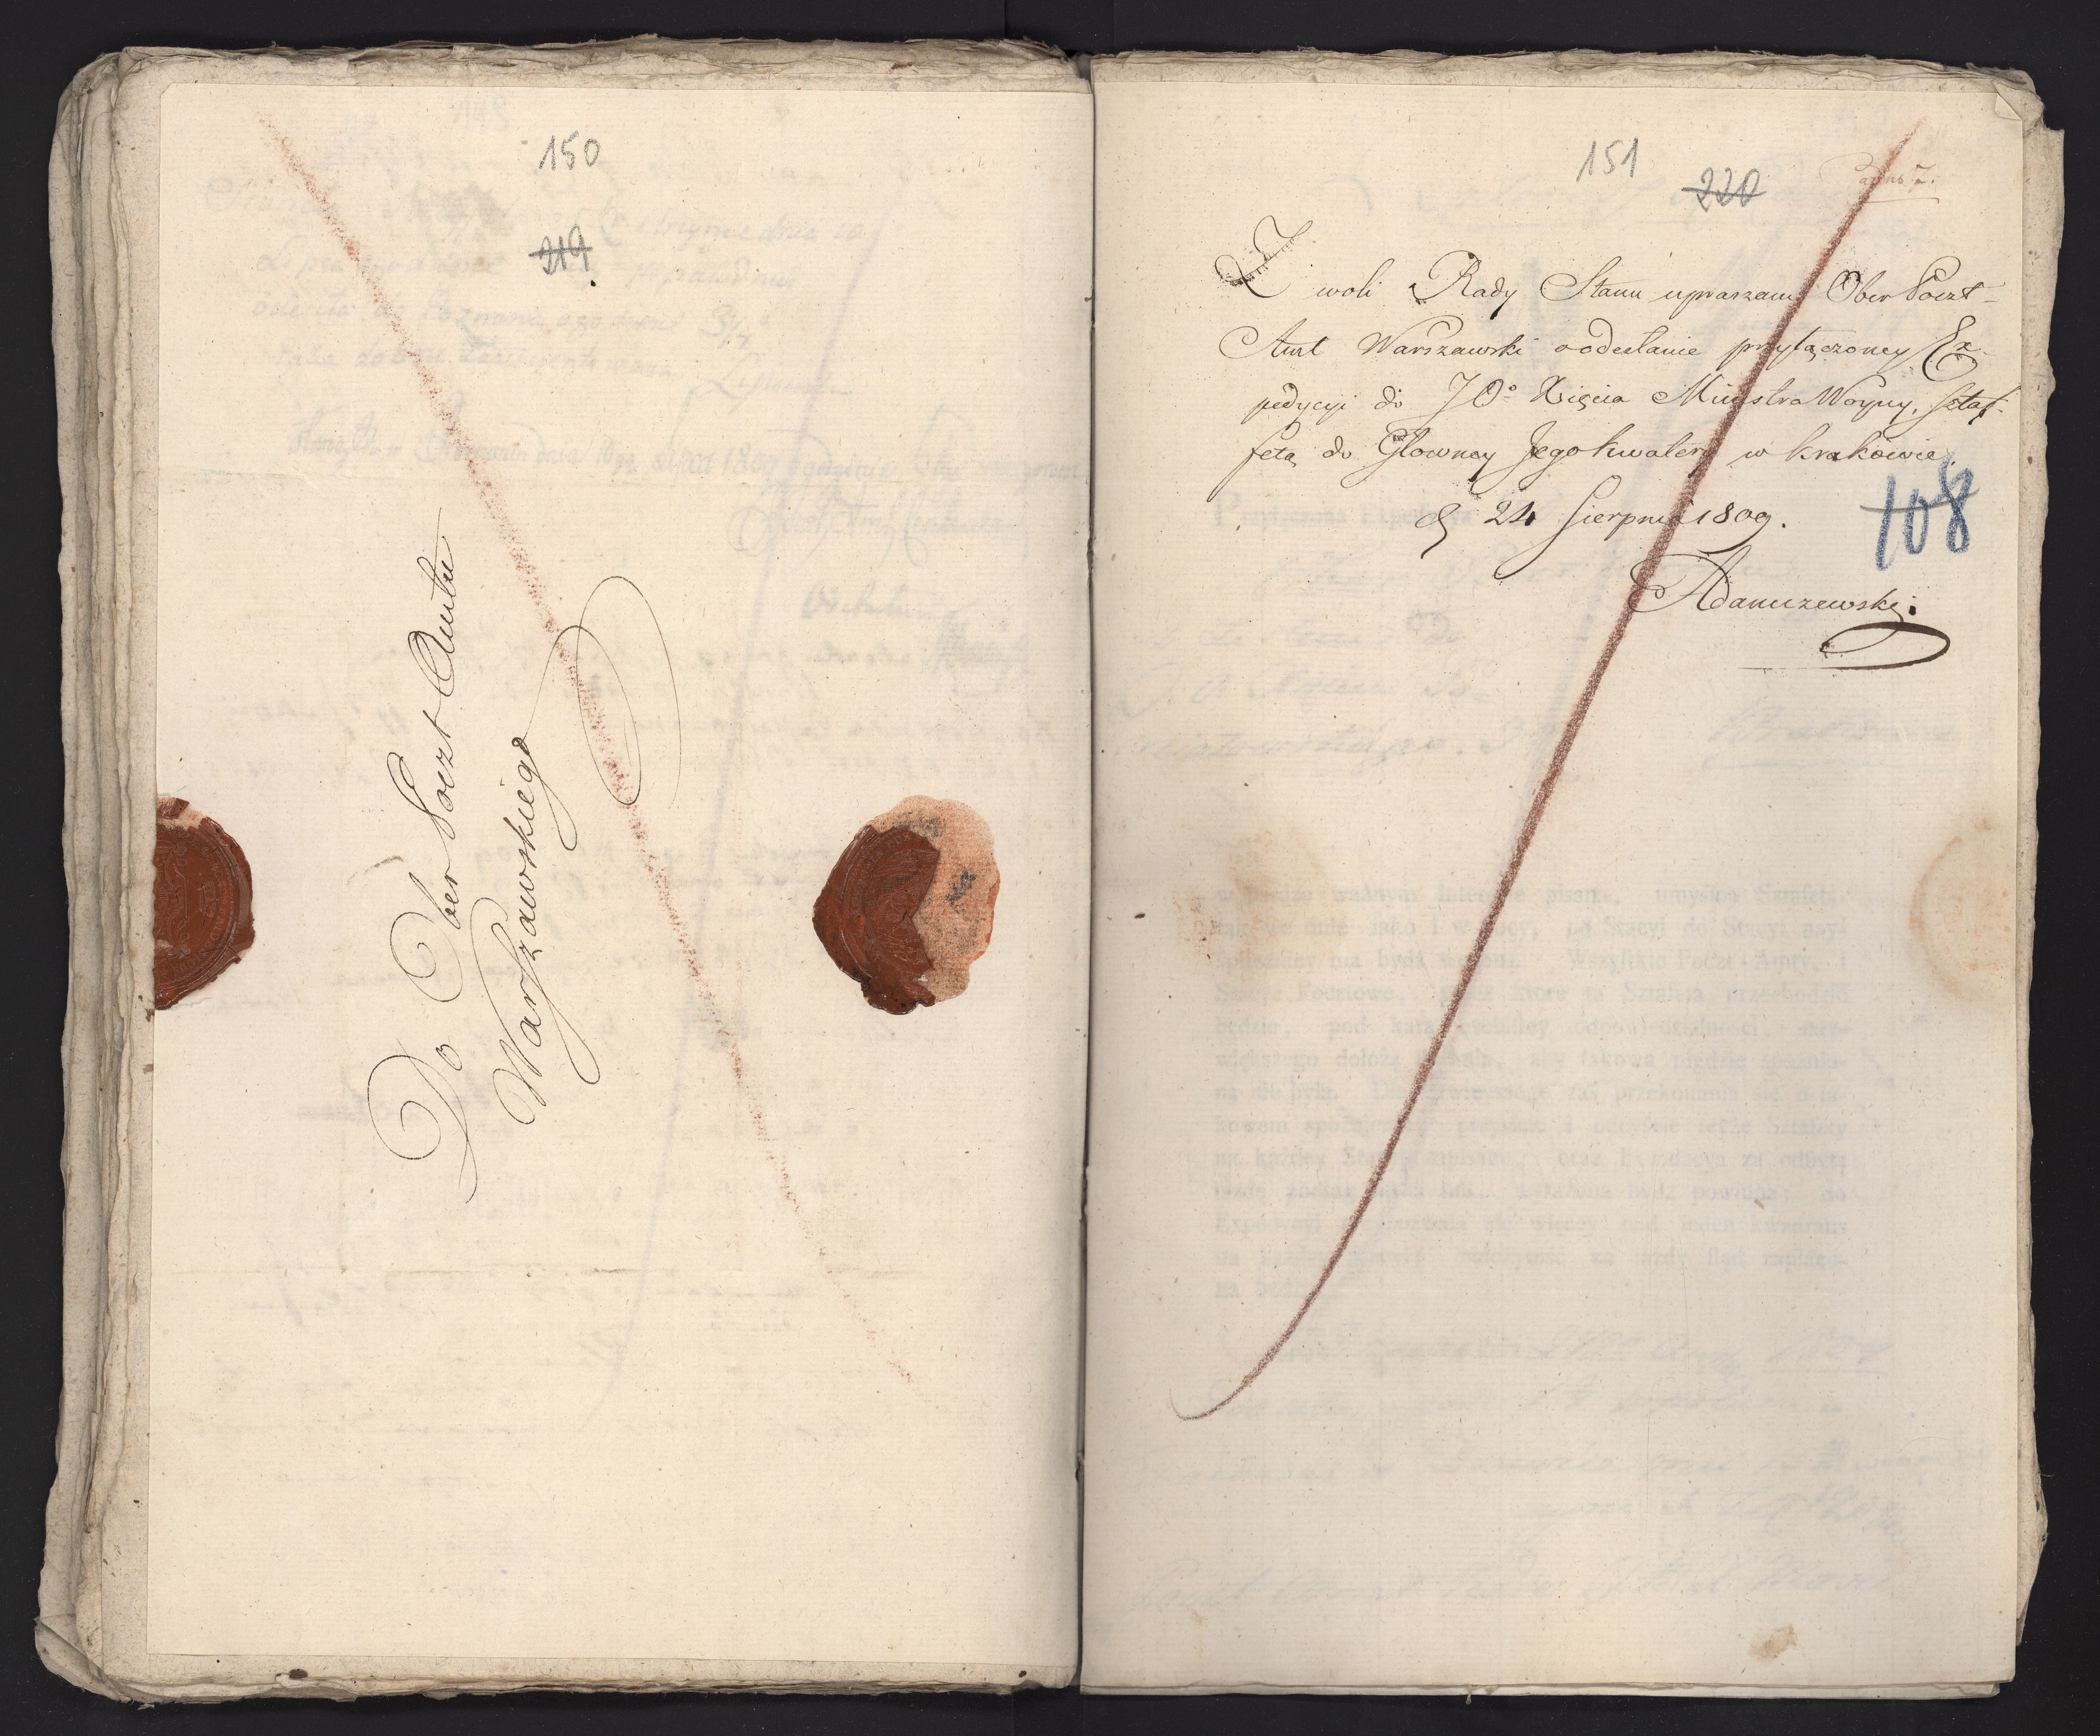 150
219
Do Ober Poczt Amtu
Warszawskiego
151
220
Z woli Rady Stanu upraszam Ober Poczt-
Amt Warszawski o odesłanie przyłączoney Ex-
pedycyi do JO° Xięcia Ministra Woyny, sztaf-
fetą do Głowney Jego kwatery w krakowie.
d 24 Sierpnia 1809.
108
Adamczewski